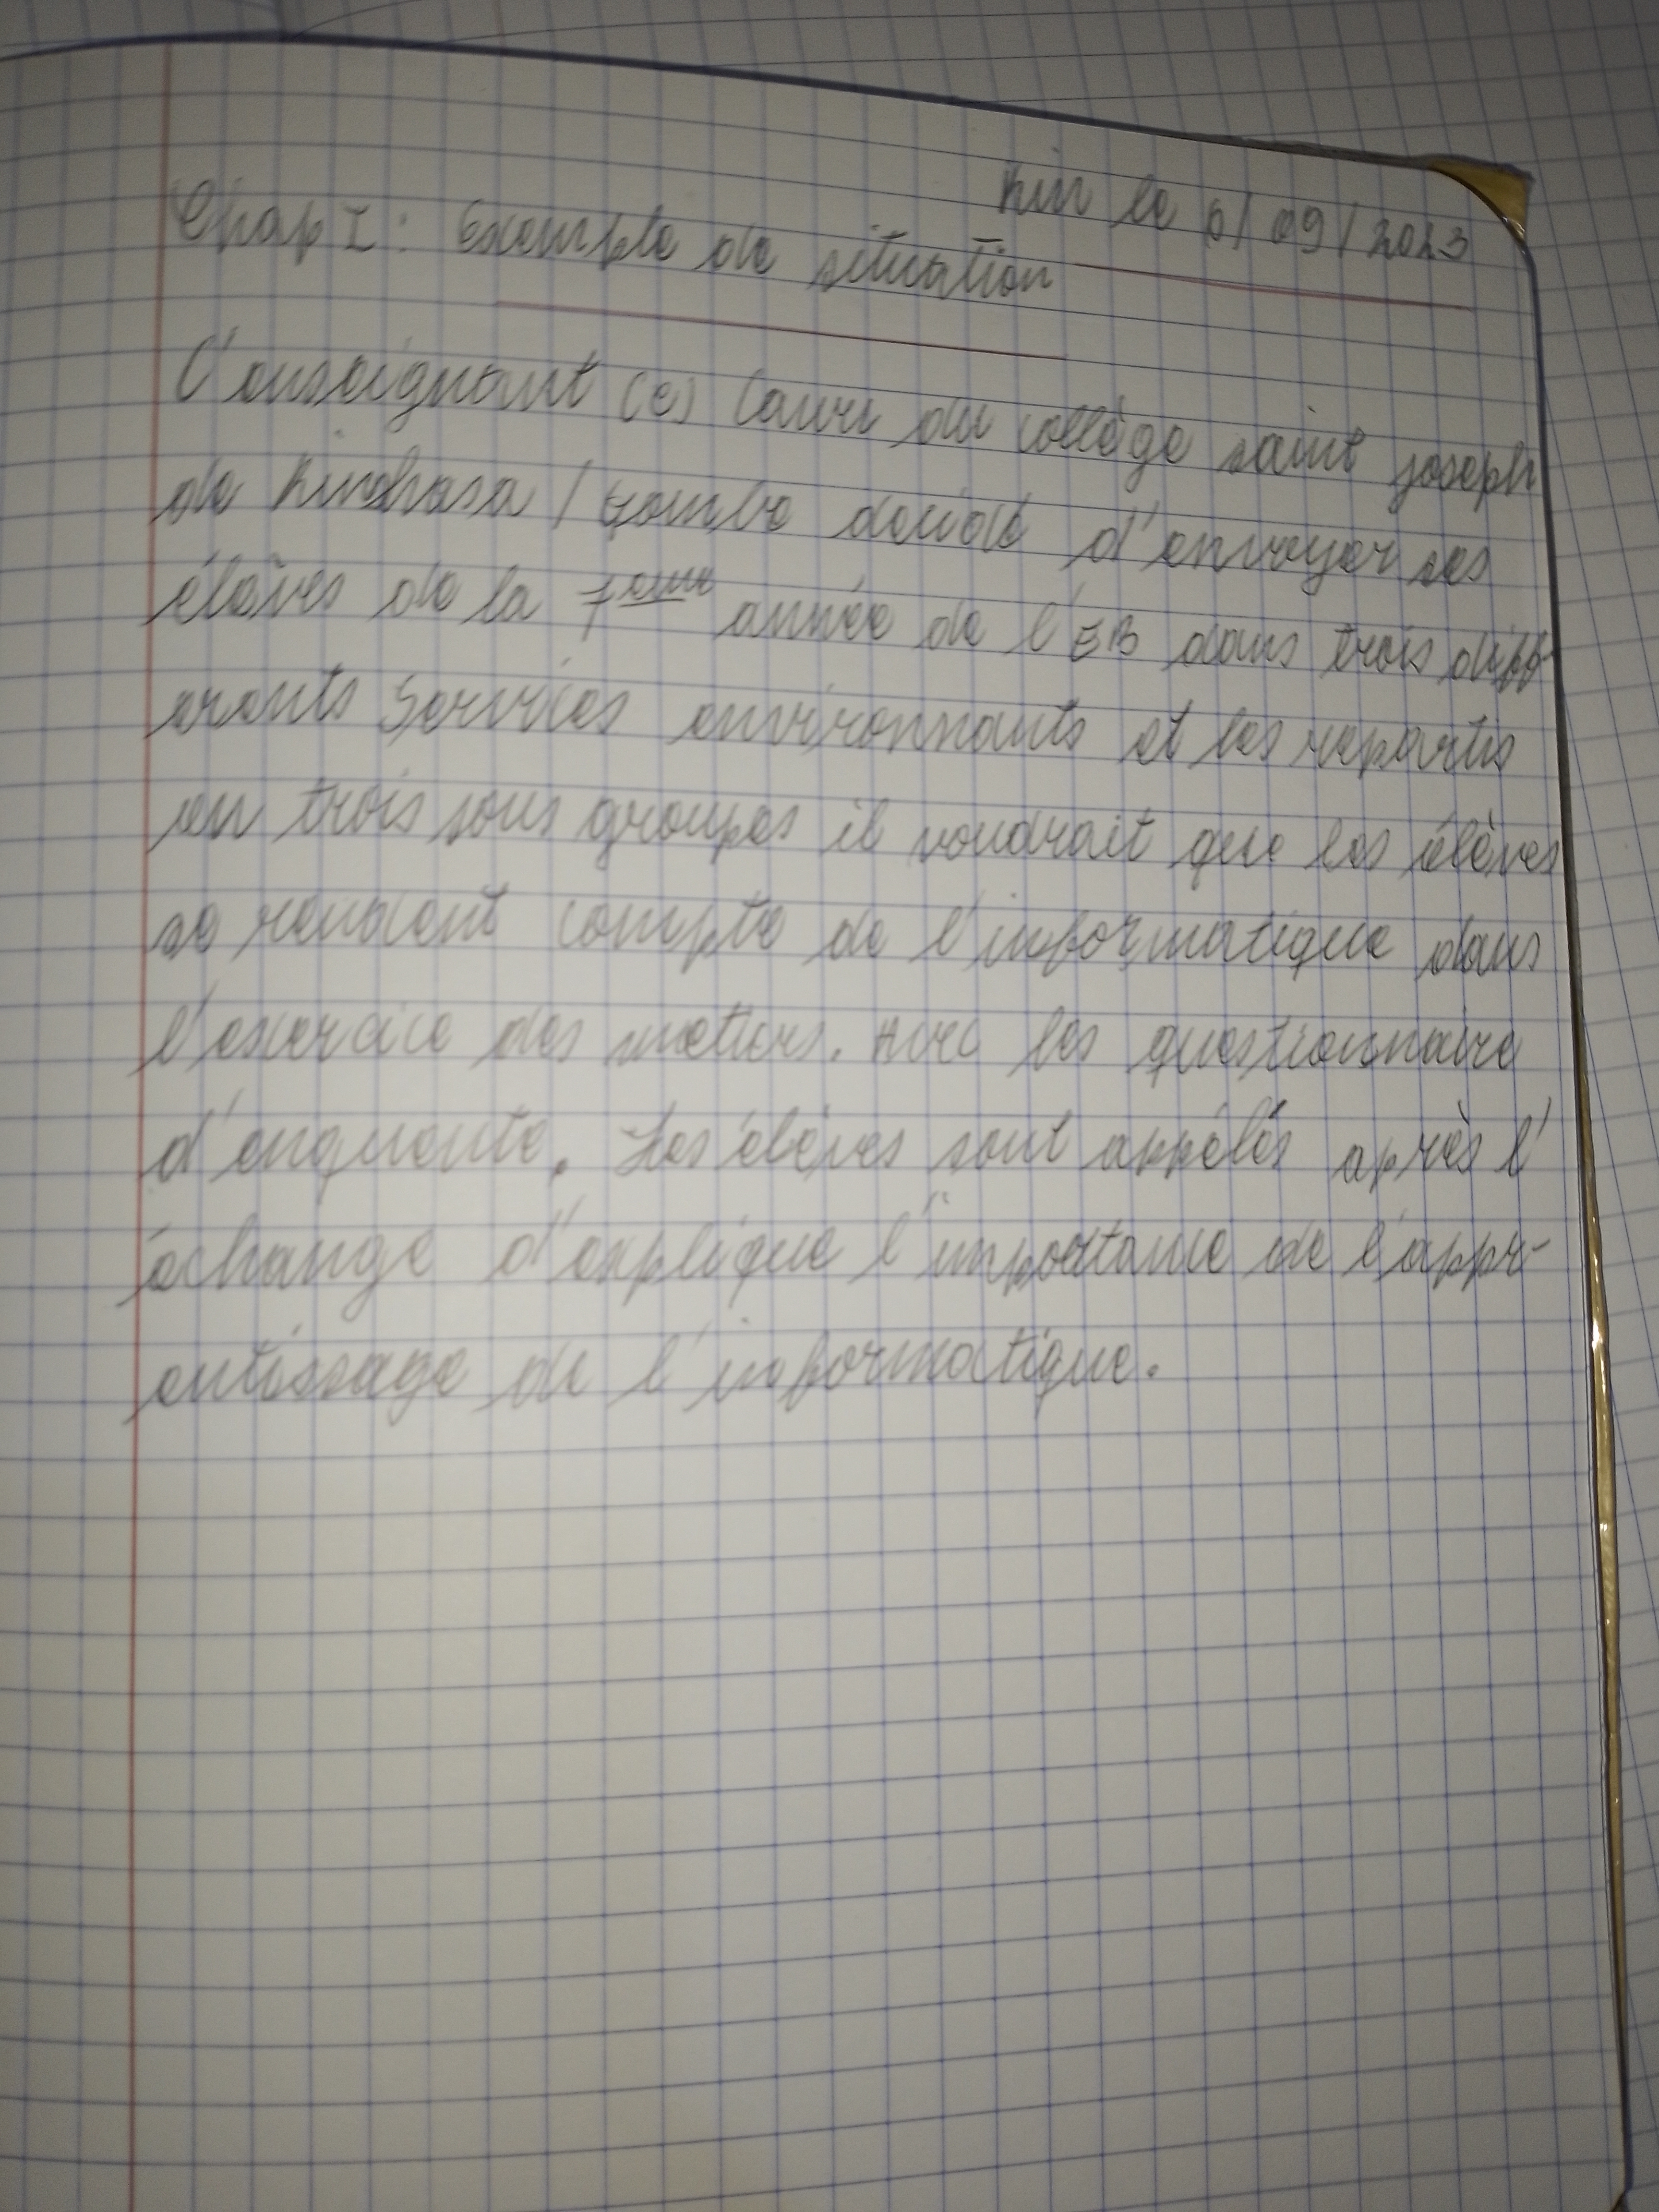 Kin le 6/09/2023
Chap I : Exemple de situation
L'enseignant (e) Laure du collège saint joseph
de Kinshasa / Gombe decide d'envoyer ses
élèves de la 7eme année de l'EB dans trois diff-
erents Services environnants et les repartis
en trois sous groupes il voudrait que les élèves
se rendent compte de l'informatique dans
l'exercice des metiers. Avec les questionnaire
d'enquente. Les élèves sont appélés après l'
échange d'explique l'importance de l'appr-
entissage de l'informatique.